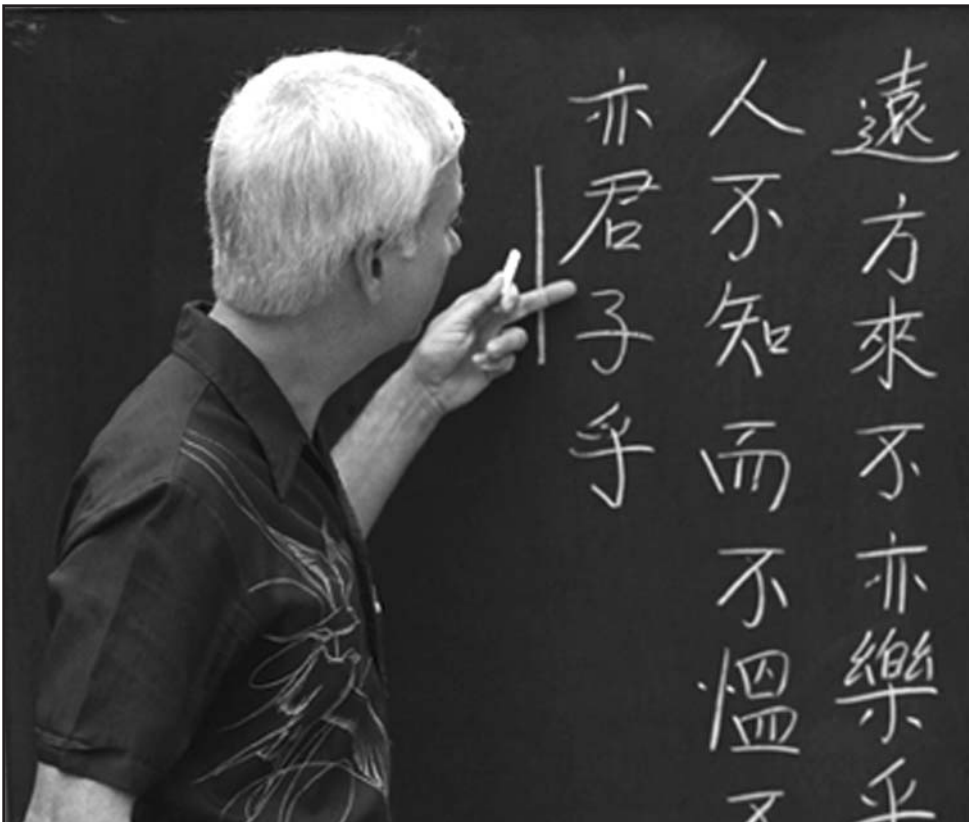 遠方來不亦樂乎
人不知而不慍不
亦君子乎